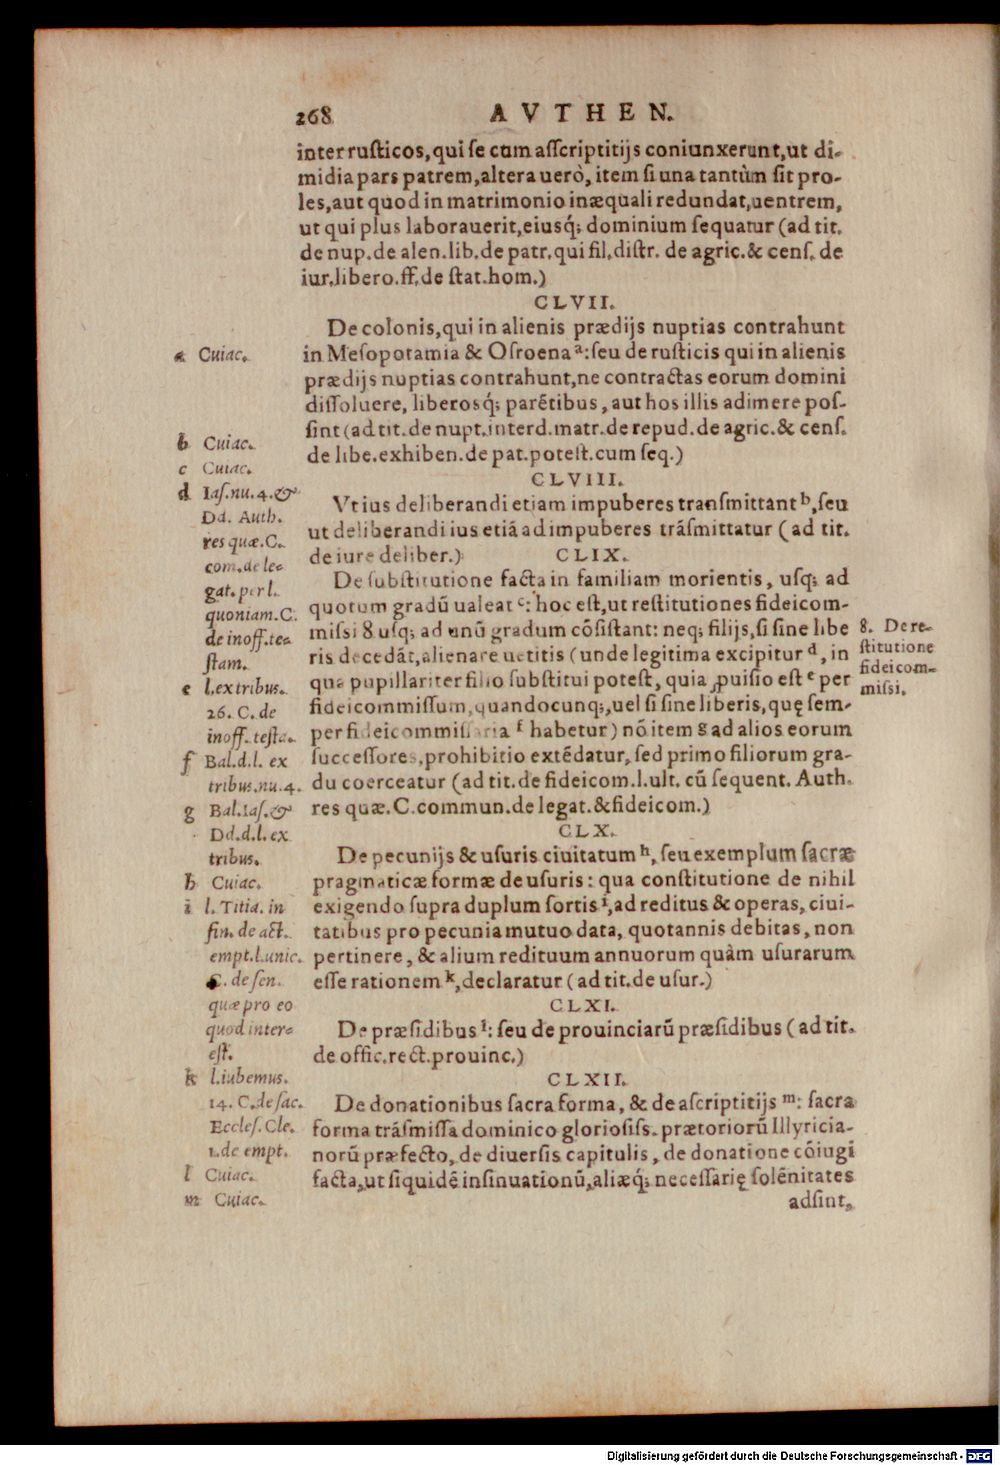 268 AVTHEN.
inter rusticos, qui se cum asscriptitijs coniunxerunt, ut di-
midia pars patrem, altera uerò, item si una tantùm sit pro-
les, aut quod in matrimonio inæquali redundat, uentrem,
ut qui plus laborauerit, eiusq́; dominium sequatur (ad tit.
de nup. de alen. lib. de patr. qui fil. distr. de agric. & cens. de
iur. libero. ff. de stat. hom.)
CLVII.
De colonis, qui in alienis prædijs nuptias contrahunt
in Mesopotamia & Osroena a: seu de rusticis qui in alienis
prædijs nuptias contrahunt, ne contractas eorum domini
dissoluere, liberosq́; parẽtibus, aut hos illis adimere pos-
sint (ad tit. de nupt. interd. matr. de repud. de agric. & cens.
de libe. exhiben. de pat. potest. cum seq.)
CLVIII.
Vt ius deliberandi etiam impuberes transmittant b, seu
ut deliberandi ius etiã ad impuberes trãsmittatur (ad tit.
de iure deliber.)
CLIX.
De substitutione facta in familiam morientis, usq; ad
quotum gradũ ualeat c: hoc est, ut restitutiones fideicom-
missi 8 usq; ad unũ gradum cõsistant: neq; filijs, si sine libe
ris decedãt, alienare uetitis (unde legitima excipitur d, in
qua pupillariter filio substitui potest, quia ꝓuisio est e per
fideicommissum, quandocunq;, uel si sine liberis, quę sem-
per fideicommissaria f habetur) nõ item g ad alios eorum
successores, prohibitio extẽdatur, sed primo filiorum gra-
du coerceatur (ad tit. de fideicom. l. ult. cũ sequent. Auth.
res quæ. C. commun. de legat. & fideicom.)
CLX.
De pecunijs & usuris ciuitatum h, seu exemplum sacræ
pragmaticæ formæ de usuris: qua constitutione de nihil
exigendo supra duplum sortis i, ad reditus & operas, ciui-
tatibus pro pecunia mutuo data, quotannis debitas, non
pertinere, & alium redituum annuorum quàm usurarum
esse rationem k, declaratur (ad tit. de usur.)
CLXI.
De præsidibus l: seu de prouinciarũ præsidibus (ad tit.
de offic. rect. prouinc.)
CLXII.
De donationibus sacra forma, & de ascriptitijs m: sacra
forma trãsmissa dominico gloriosiss. prætoriorũ Illyricia-
norũ præfecto, de diuersis capitulis, de donatione cõiugi
facta, ut siquidẽ insinuationũ, aliæq́; necessarię solẽnitates
adsint,
a Cuiac.
b Cuiac.
c Cuiac.
d Ias. nu. 4. &
Dd. Auth.
res quæ. C.
com. de le-
gat. per l.
quoniam. C.
de inoff. te-
stam.
e l. ex tribus.
26. C. de
inoff. testa.
f Bal. d. l. ex
tribus. nu. 4.
g Bal. Ias. &
Dd. d. l. ex
tribus.
h Cuiac.
i l. Titia. in
fin. de act.
empt. l. unic.
C. de sen.
quæ pro eo
quod inter-
est.
k l. iubemus.
14. C. de sac.
Eccles. Cle.
1. de empt.
l Cuiac.
m Cuiac.
8. De re-
stitutione
fideicom-
missi.
Digitalisierung gefördert durch die Deutsche Forschungsgemeinschaft - DFG